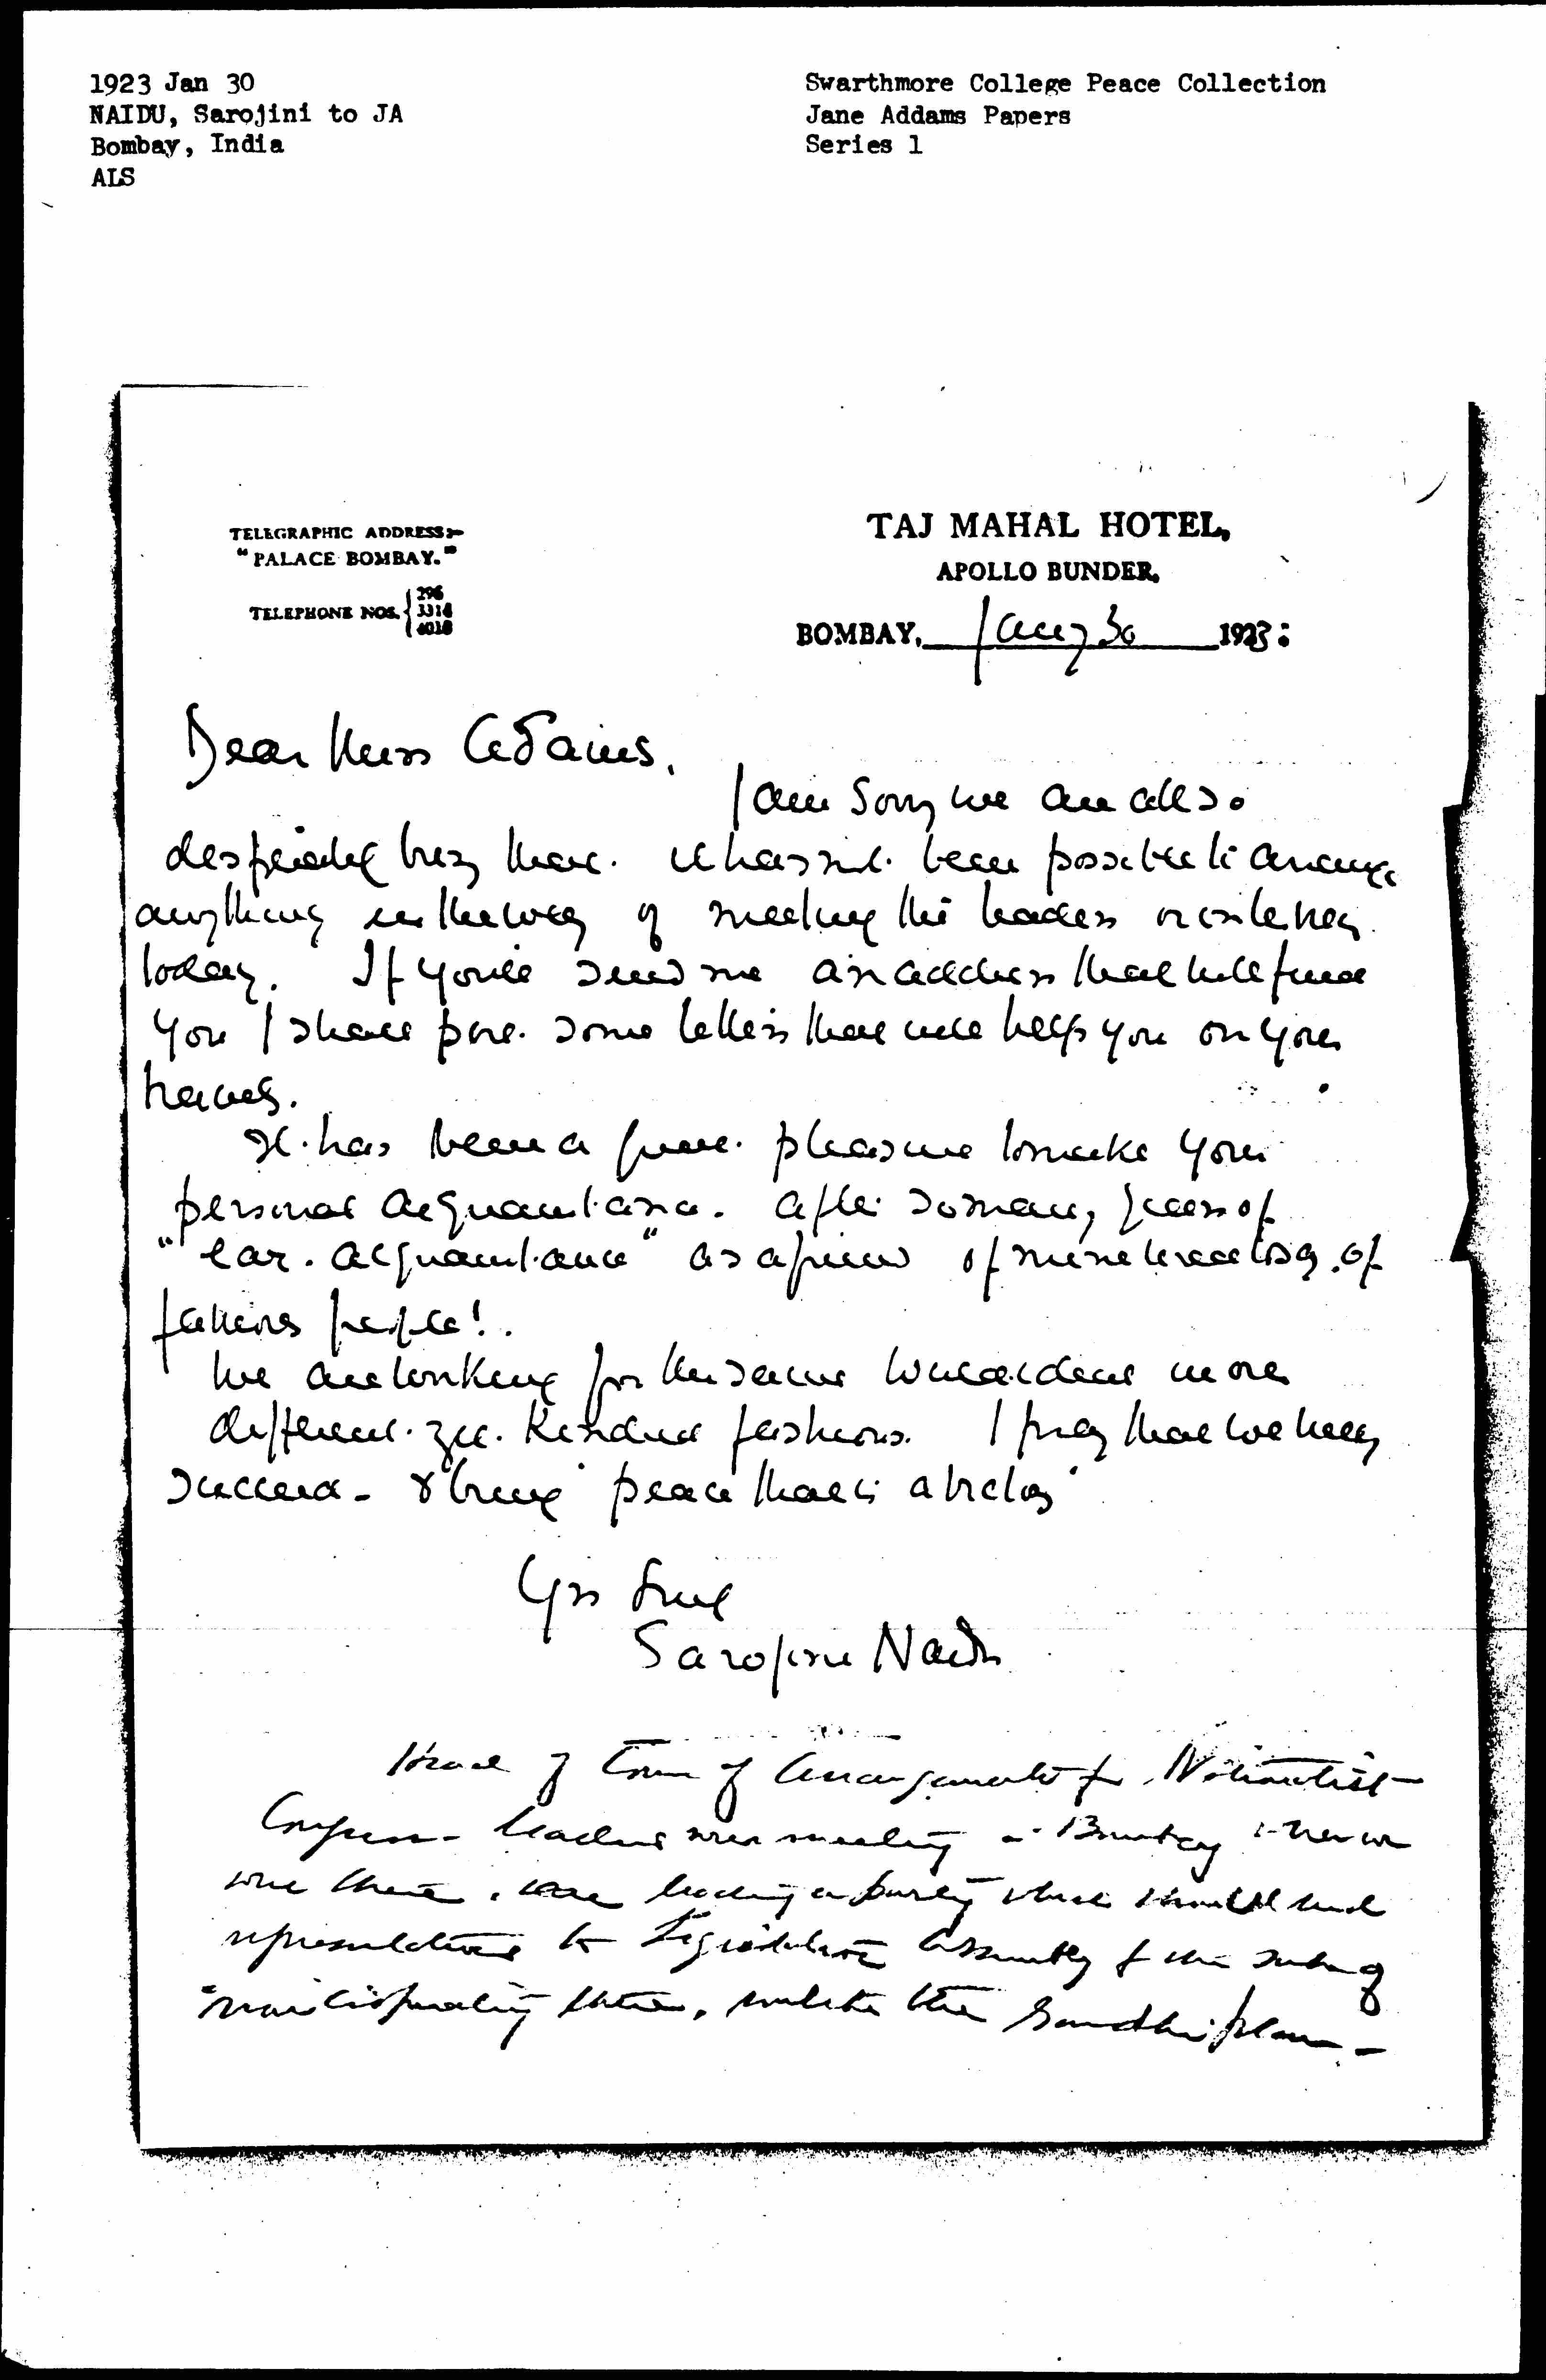 1923 Jan 30
NAIDU, Sarojini to JA
Bombay, India
ALS
Swarthmore College Peace Collection
Jane Addams Papers
Series 1
TELEGRAPHIC ADDRESS:-
"PALACE BOMBAY."
TELEPHONE NOS. 296
3314
TAJ MAHAL HOTEL,
APOLLO BUNDER,
BOMBAY, Jany 30 1923:
Dear Miss Addams,
I am sorry we are all so
desperately busy that it has not been possible to arrange
anything in the way of meeting the leaders
today. If you'll send me an address that will find
you I shall post some letters that will help you on your
travels.
It has been a great pleasure to make your
personal acquaintance after so many years of
"ear-acquaintance" as a friend of mine used to say of
famous people!
We are working for the same ideal in our
different yet kindred fashions. I pray that we may
succeed & bring peace that is a victory
Yrs Sincly
Sarojini Naidu
Head of Com of Arrangements for Nationalist
Congress - leaders were meeting in Bombay when we
were there. leading a party which should send
representatives to Legislative Assembly &
participating there, unlike the Gandhi plan -